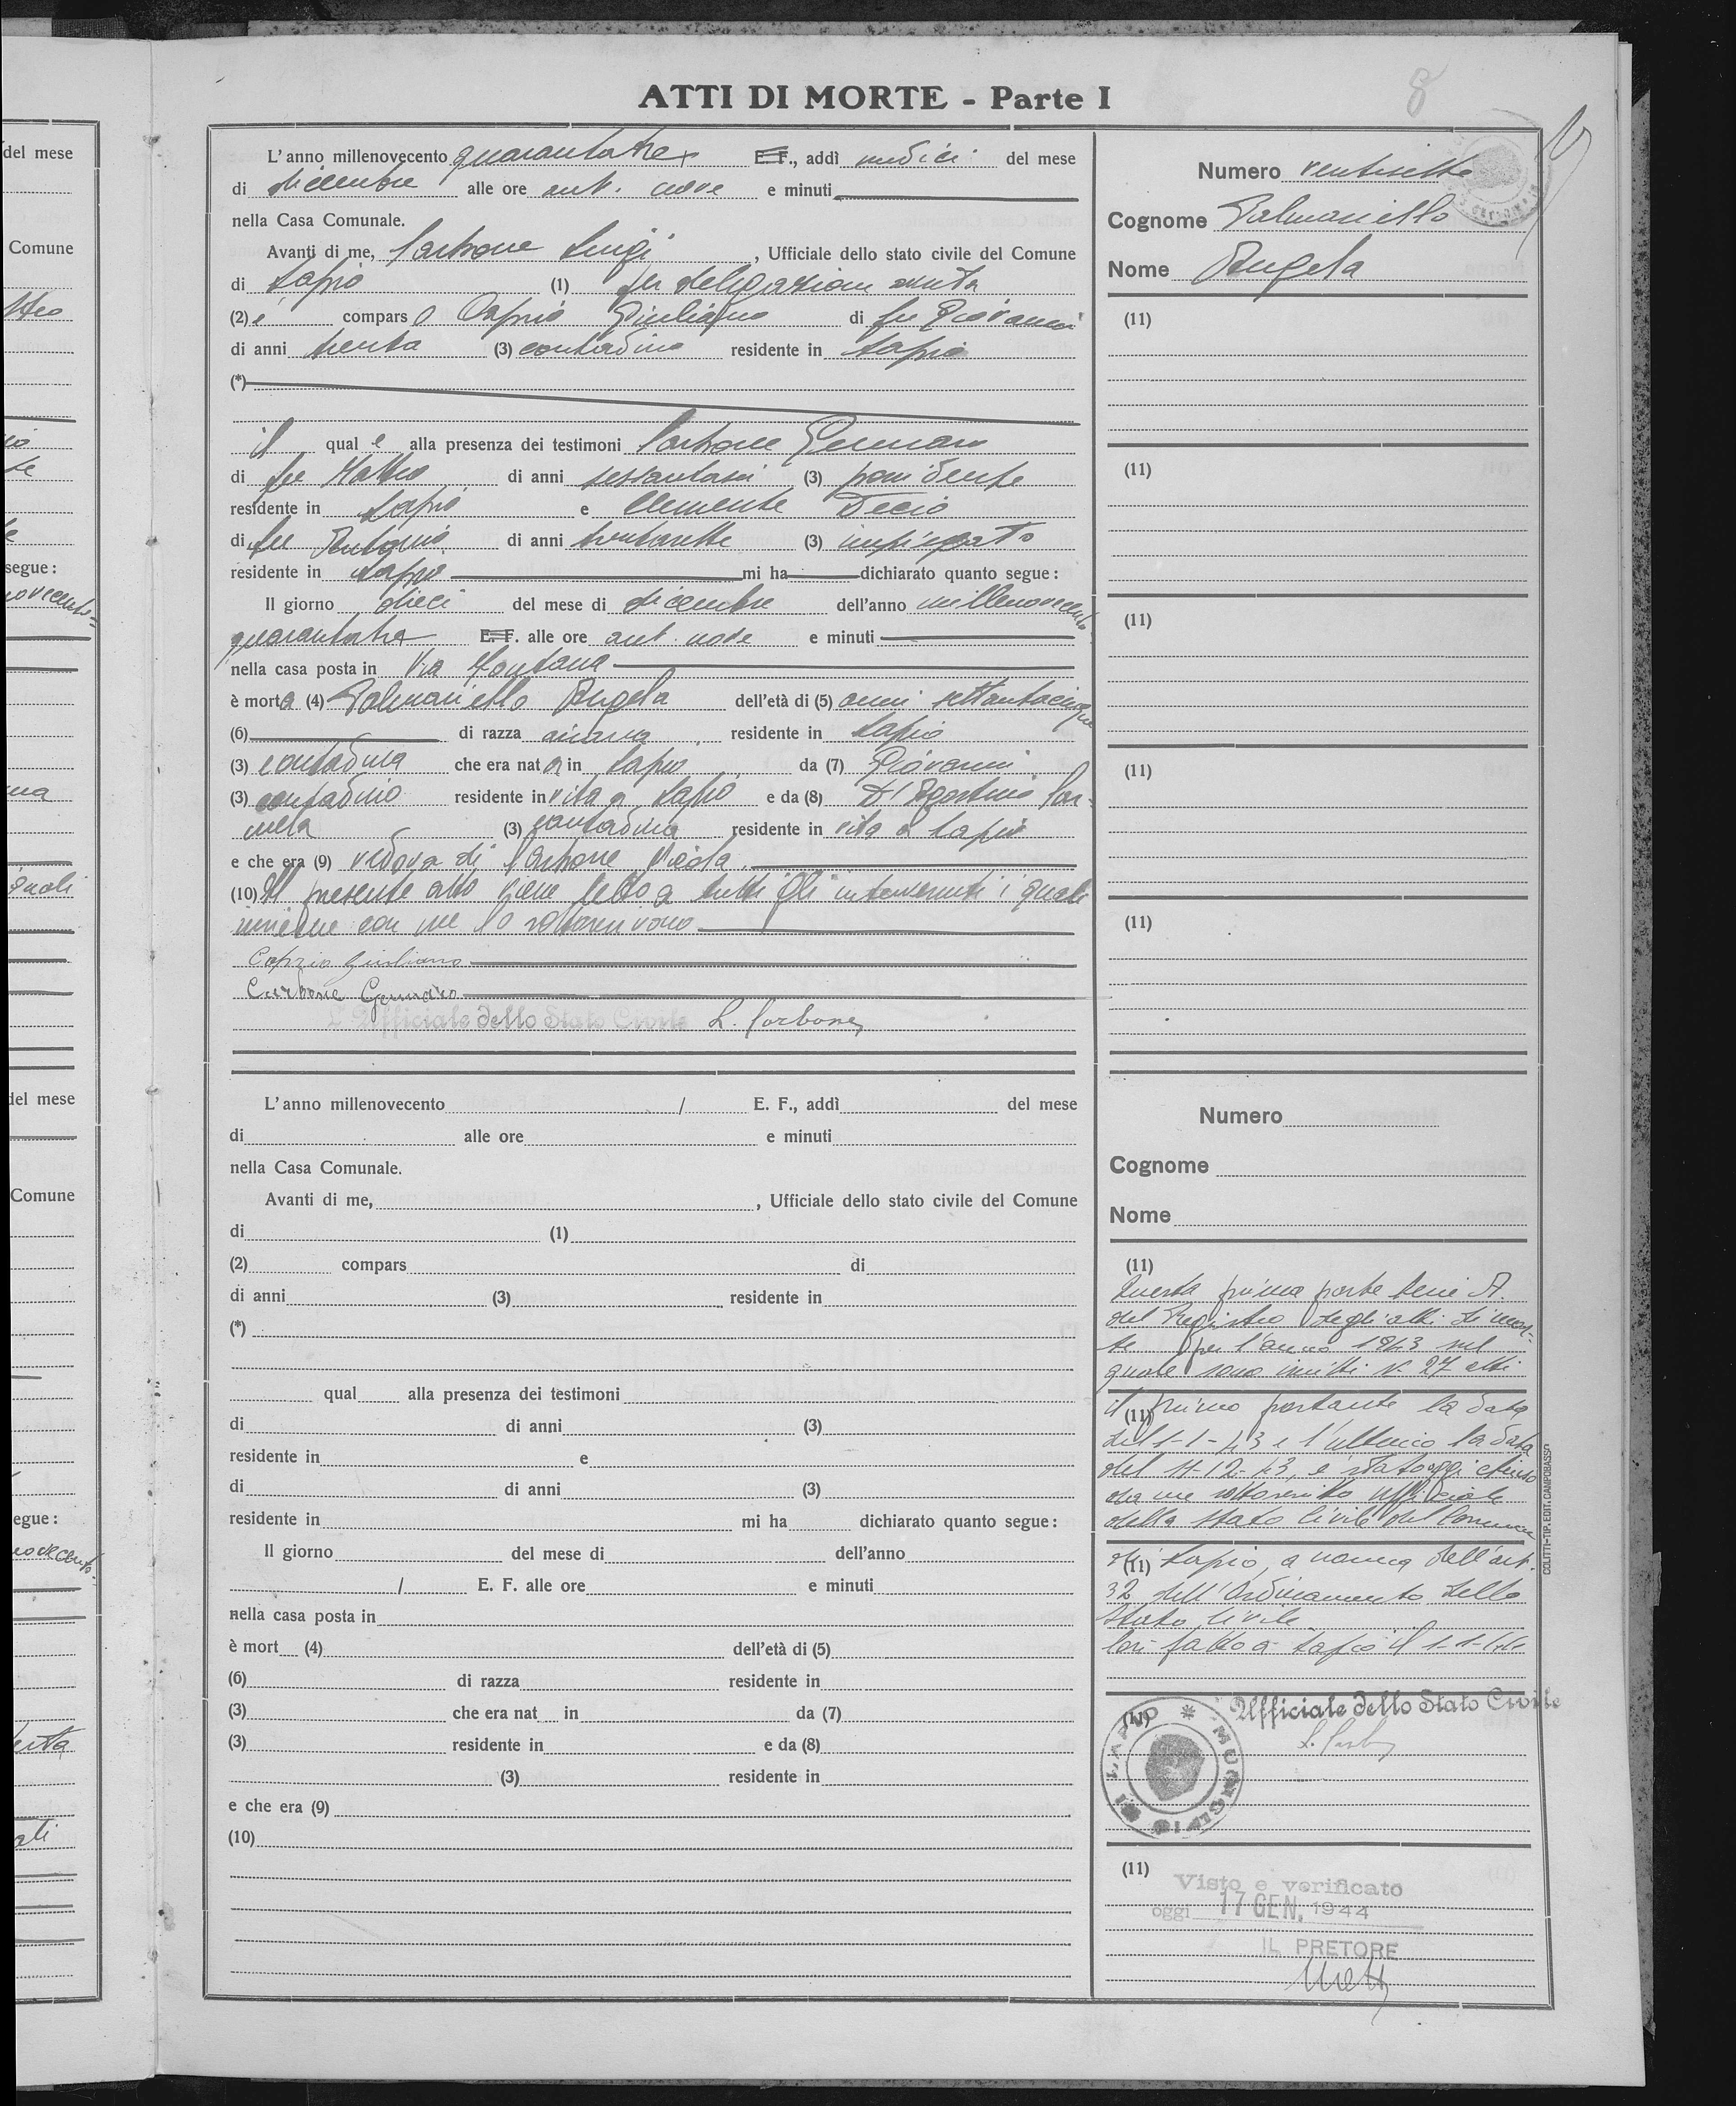 ATTI DI MORTE - Parte I
8
L'anno millenovecento quarantatre E. F., addì undici del mese
di dicembre alle ore ant. nove e minuti
nella Casa Comunale.
Avanti di me, Carbone Luigi, Ufficiale dello stato civile del Comune
di Lapio (1) per delegazione avuta
(2) è comparso Caprio Giuliano di fu Giovanni
di anni trenta (3) contadino residente in Lapio
(*)
il quale alla presenza dei testimoni Carbone Gennaro
di fu Matteo di anni sessantasei (3) possidente
residente in Lapio e Clemente Decio
di fu Antonio di anni trentasette (3) impiegato
residente in Lapio mi ha dichiarato quanto segue:
Il giorno dieci del mese di dicembre dell'anno millenovecento
quarantatre E. F. alle ore ant. nove e minuti
nella casa posta in Via Fontana
è morta (4) Palmariello Angela dell'età di (5) anni settantacinque
(6) di razza ariana residente in Lapio
(3) contadina che era nata in Lapio da (7) Giovanni
(3) contadino residente in vita a Lapio e da (8) D'Agostino Car-
mela (3) contadina residente in vita a Lapio
e che era (9) vedova di Carbone Nicola.
(10) Il presente atto viene letto a tutti gli intervenuti i quali
insieme con me lo sottoscrivono
Caprio Giuliano
Carbone Gennaro
L'Ufficiale dello Stato Civile L. Carbone
Numero ventisette
Cognome Palmariello
Nome Angela
(11)
(11)
(11)
(11)
(11)
L'anno millenovecento / E. F., addì del mese
di alle ore e minuti
nella Casa Comunale.
Avanti di me, , Ufficiale dello stato civile del Comune
di (1)
(2) compars di
di anni (3) residente in
(*)
qual alla presenza dei testimoni
di di anni (3)
residente in e
di di anni (3)
residente in mi ha dichiarato quanto segue:
Il giorno del mese di dell'anno
/ E. F. alle ore e minuti
nella casa posta in
è mort (4) dell'età di (5)
(6) di razza residente in
(3) che era nat in da (7)
(3) residente in e da (8)
(3) residente in
e che era (9)
(10)
Numero
Cognome
Nome
(11)
Questa prima parte serie A.
del Registro degli atti di mor-
te per l'anno 1943 sul
quale sono iscritti N. 27 atti
(11) il primo portante la data
del 1-1-43 e l'ultimo la data
del 11-12-43, è stato oggi chiuso
da me sottoscritto Ufficiale
dello Stato Civile del Comune
(11) di Lapio, a norma dell'art.
32 dell'Ordinamento dello
Stato Civile
Così fatto a Lapio il 1-1-44
Ufficiale dello Stato Civile
L. Carbone
(11)
MUNICIPIO DI LAPIO
(11)
Visto e verificato
oggi 17 GEN. 1944
IL PRETORE
COLITTI-TIP. EDIT. CAMPOBASSO
del mese
Comune
segue:
del mese
Comune
egue: